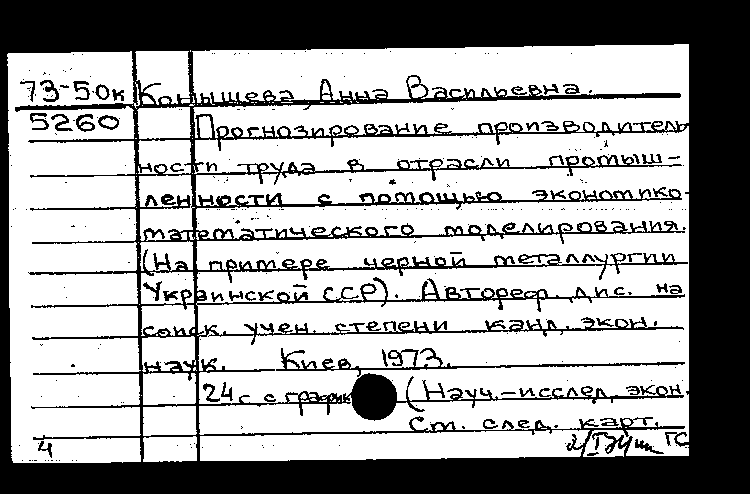 73-50к Конышева, Анна Васильевна.
5260 Прогнозирование производитель
ности труда в отрасли промыш-
ленности с помощью экономико-
математического моделирования.
(На примере черной металлургии
Украинской ССР). Автореф. дис. на
соиск. учен. степени канд. экон.
наук. Киев, 1973.
24 с с график (Науч.-исслед. экон.
См. след. карт.
4 ГС